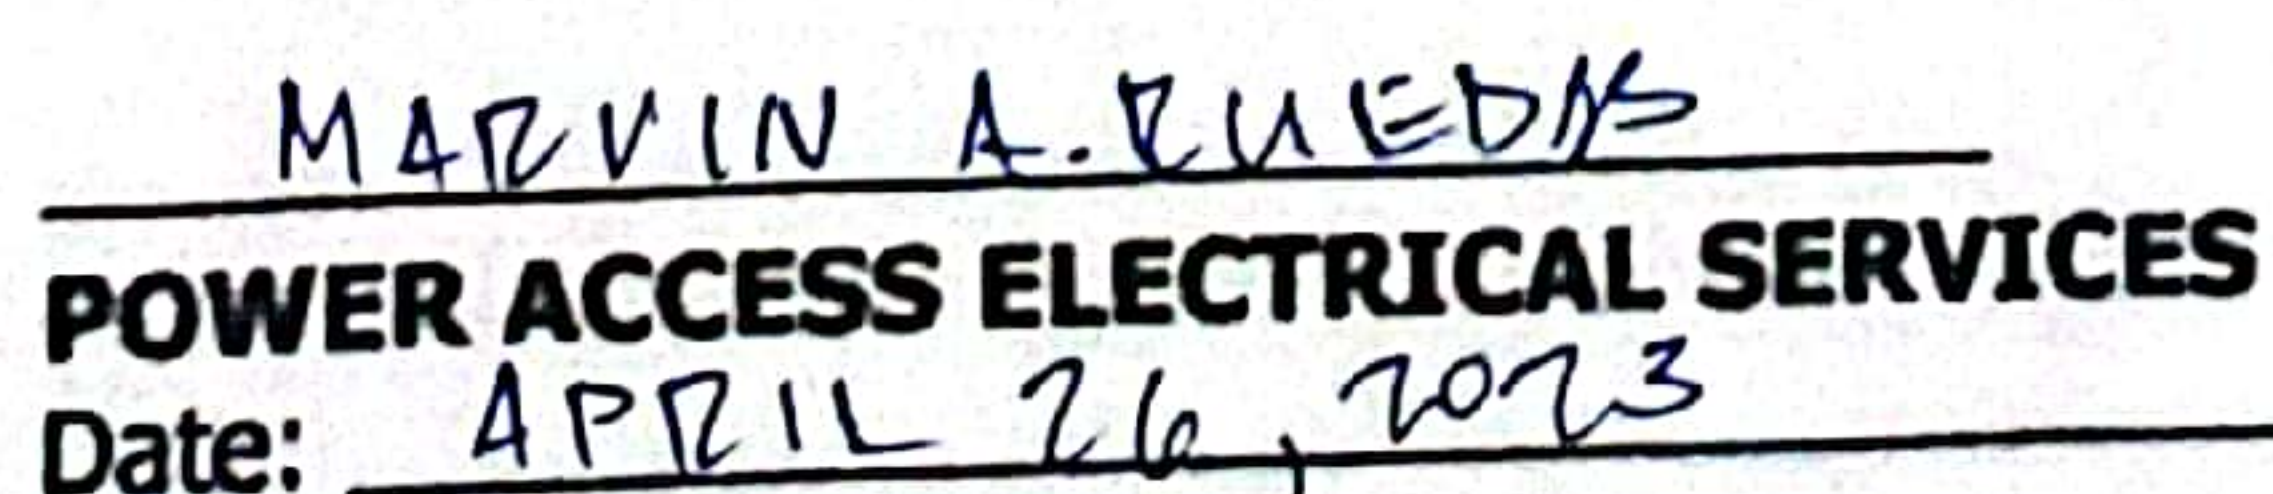 MARVIN A. RUEDAS
POWER ACCESS ELECTRICAL SERVICES
Date: APRIL 26, 2023